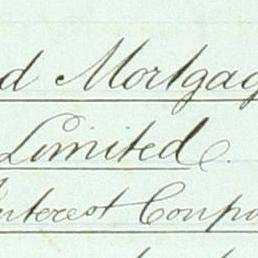 d Mortgag
Limited.
Interest Coupo